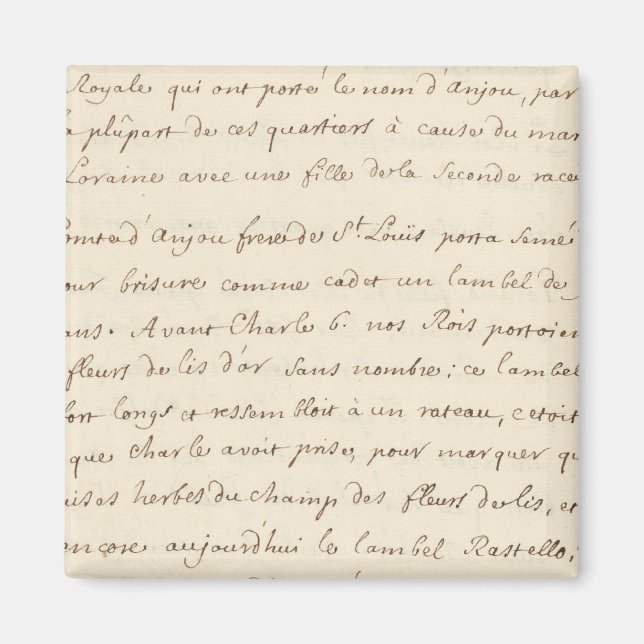 Royale qui ont porté le nom d'Anjou, par
la plûpart de ces quartiers à cause du mar
Loraine avec une fille de la seconde race
omte d'Anjou frere de St. Loüis porta semé
our brisure comme cadet un lambel de
ans. Avant Charle 6. nos Rois portoien
fleurs de lis d'or sans nombre; ce lambel
fort longs et ressembloit à un rateau, c'etoit
que Charle avoit prise, pour marquer qu
uises herbes du champ des fleurs de lis, et
encore aujourd'hui le lambel Rastello;